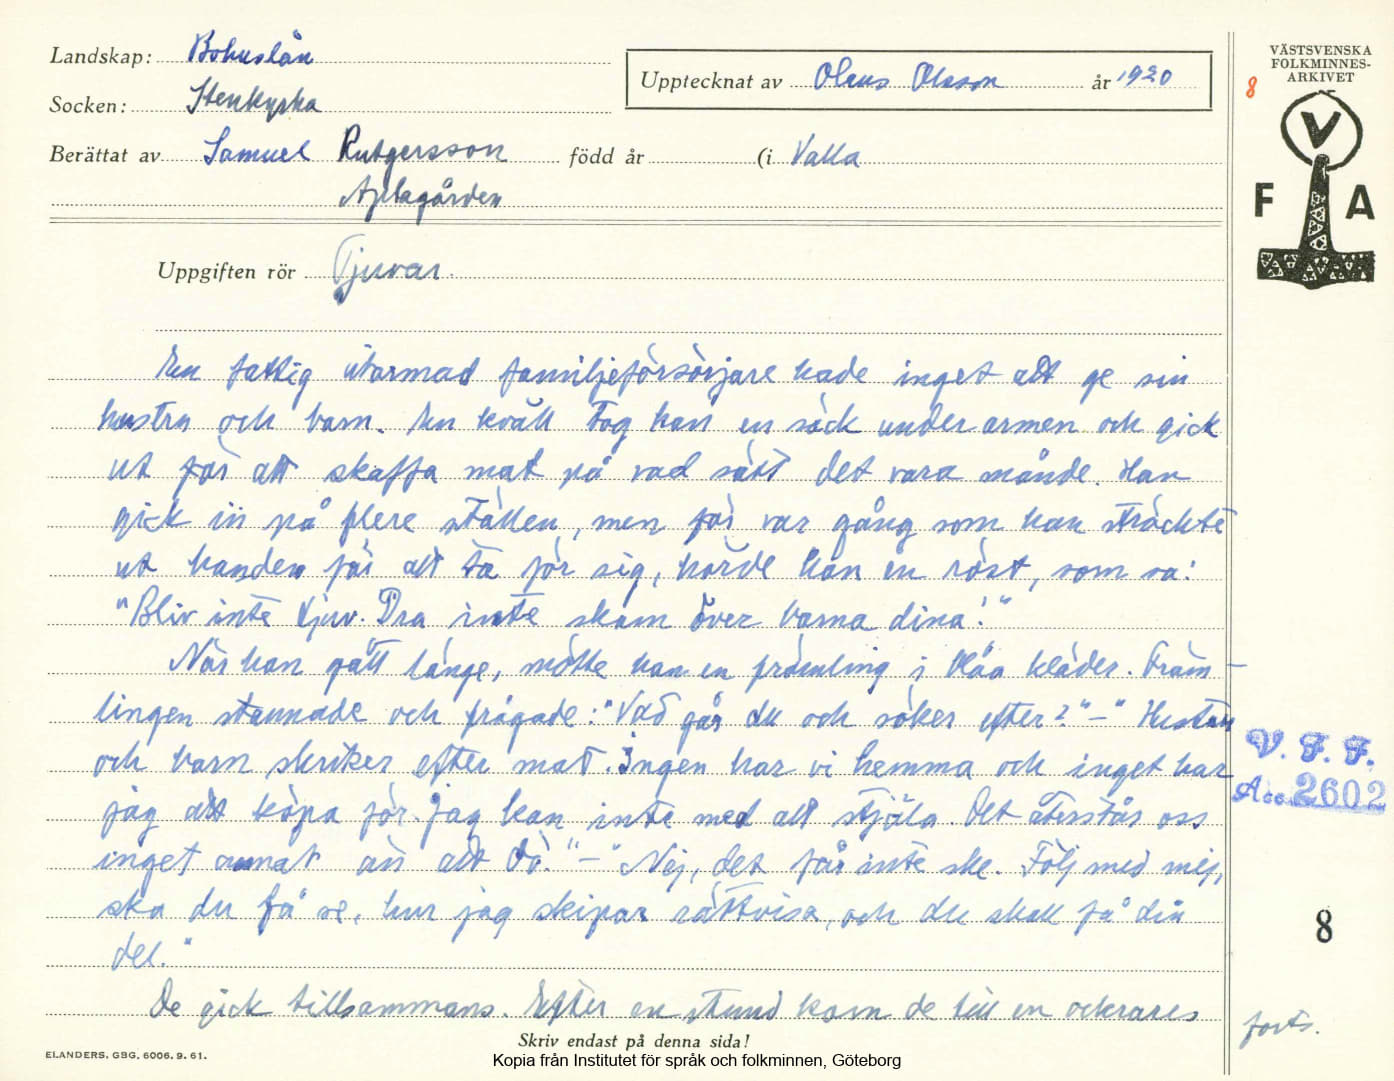 Landskap: Bohuslän
Socken: Stenkyrka
Upptecknat av Oleus Olsson år 1920
Berättat av Samuel Rutgersson född år (i Valla
Aplagården
Uppgiften rör Tjuvar.
VÄSTSVENSKA
FOLKMINNES-
ARKIVET
8
V
F A
En fattig utarmad familjeförsörjare hade inget att ge sin
hustru och barn. En kväll tog han en säck under armen och gick
ut för att skaffa mat på vad sätt det vara månde. Han
gick in på flere ställen, men för var gång som han sträckte
ut handen för att ta för sig, hörde han en röst, som sa:
"Bliv inte tjuv. Dra inte skam över barna dina!"
När han gått länge, mötte han en främling i blåa kläder. Främ-
lingen stannade och frågade: "Vad går du och söker efter?" – "Hustru
och barn skriker efter mat. Ingen har vi hemma och inget har
jag att köpa för. Jag kan inte med att stjäla. Det återstås oss
inget annat än att dö." – "Nej, det får inte ske. Följ med mej,
ska du få se, hur jag skipar rättvisa, och du skall få din
del."
De gick tillsammans. Efter en stund kom de till en ockrares
V. F. F.
Acc. 2602
8
forts.
Skriv endast på denna sida!
ELANDERS, GBG, 6006. 9. 61.
Kopia från Institutet för språk och folkminnen, Göteborg